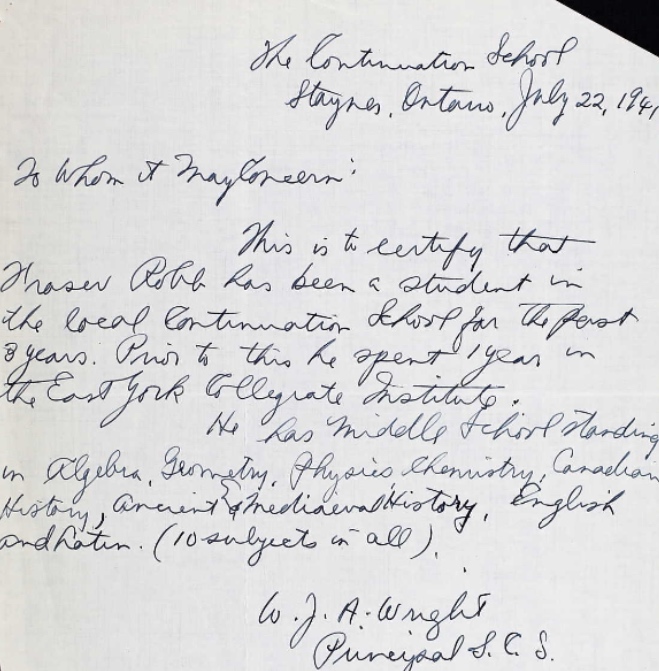 The Continuation School
Stayner, Ontario, July 22, 1941
To Whom it May Concern:
This is to certify that
Fraser Robb has been a student in
the local Continuation School for the past
3 years. Prior to this he spent 1 year in
the East York Collegiate Institute.
He has Middle School standing
in Algebra, Geometry, Physics Chemistry, Canadian
History, Ancient & Mediaeval History, English
and Latin. (10 subjects in all).
W. J. A. Wright
Principal S. C. S.